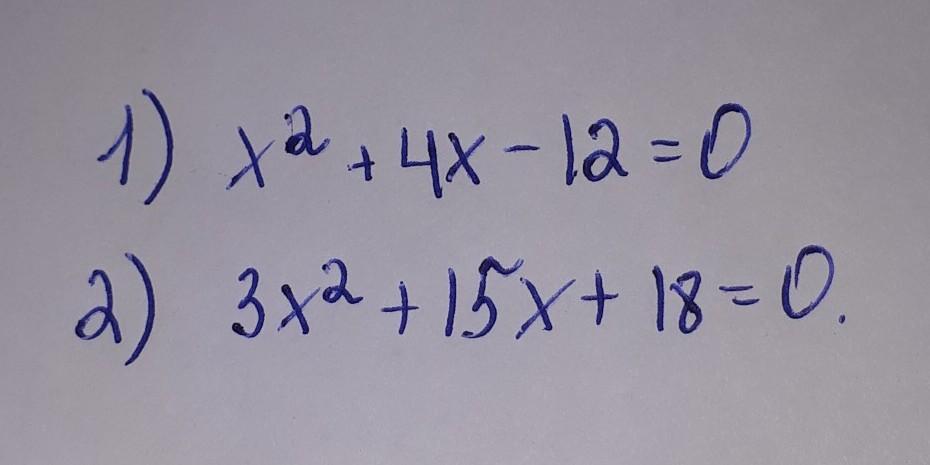 1) x² + 4x - 12 = 0
2) 3x² + 15x + 18 = 0.